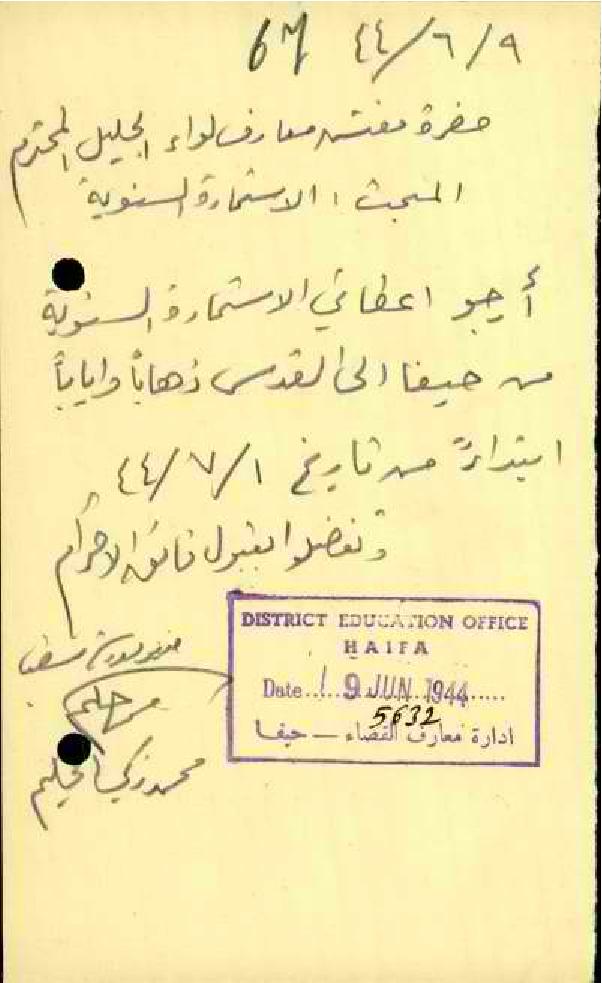 ٤٤/٦/٩ 67
حضرة مفتش معارف لواء الجليل المحترم
المبحث : الاستمارة السنوية
أرجو اعطائي الاستمارة السنوية
من حيفا الى القدس ذهاباً واياباً
ابتداءً من تاريخ ٤٤/٧/١
وتفضلوا بقبول فائق الاحترام
مدير مدرسة
محمد زكي الحليم
DISTRICT EDUCATION OFFICE
HAIFA
Date 19 JUN 1944
5632
ادارة معارف القضاء — حيفا